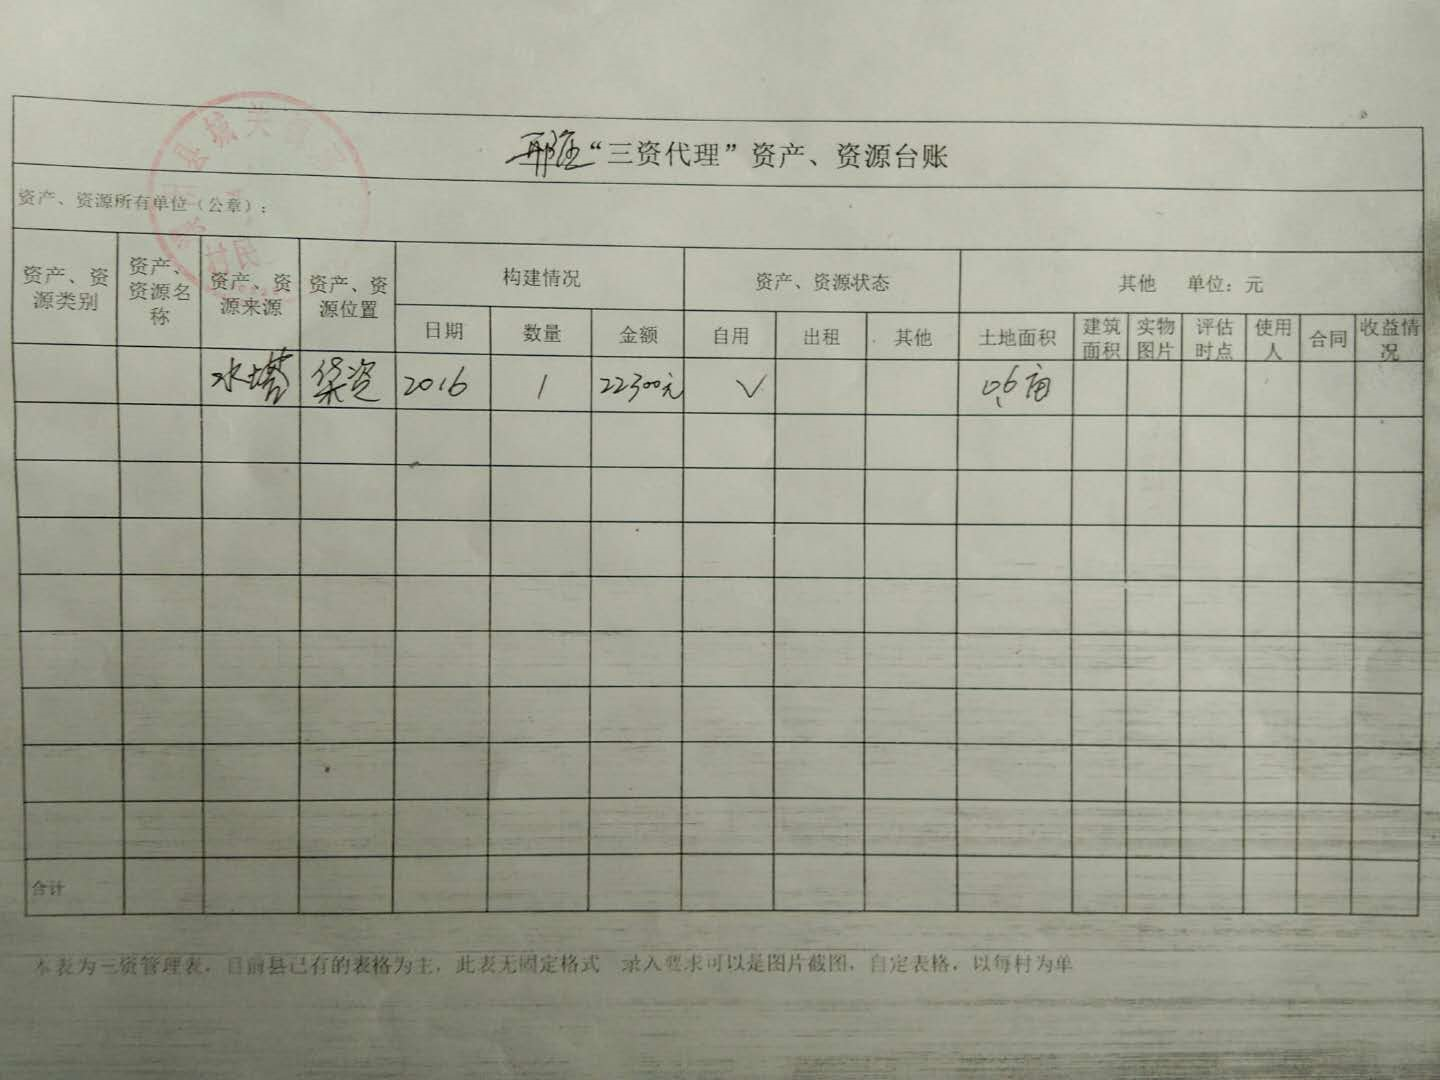 “三资代理”资产、资源台账
资产、资源所有单位（公章）：
资产、资源类别 资产、资源名称 资产、资源来源 资产、资源位置 构建情况 资产、资源状态 其他 单位：元
日期 数量 金额 自用 出租 其他 土地面积 建筑面积 实物图片 评估时点 使用人 合同 收益情况
水塔 2016 1 22300元 √ 0.6亩
合计
本表为三资管理表，目前县已有的表格为主，此表无固定格式 录入要求可以是图片截图，自定表格，以每村为单